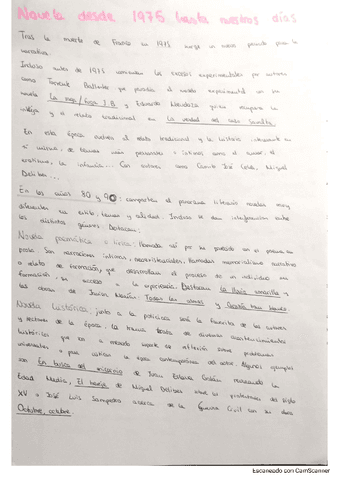 Novela desde 1975 hasta nuestros días
Tras la muerte de Franco en 1975 surge un nuevo periodo para la
narrativa.
Incluso antes de 1975 comienzan los excesos experimentales por autores
como Torrente Ballester que parodia el modelo experimental en su
novela La saga/fuga J.B y Eduardo Mendoza que recupera la
intriga y el relato tradicional en La verdad del caso Savolta.
En esta época vuelven el relato tradicional y la historia
si misma, de temas más personales e íntimos como el amor, el
erotismo, la infancia... Con autores como Camilo José Cela, Miguel
Delibes...
En los años 80 y 90: comparten el panorama literario novelas muy
diferentes en estilo, temas y calidad. Incluso se da interferencia entre
los distintos géneros. Destacan:
Novela poemática o lírica: llamada así por su parecido con el poema en
prosa. Son narraciones íntimas, llamadas memorialismo narrativo
o relato de formación, que desarrollan el proceso de un individuo en
formación, su acceso a la experiencia. Destacan La lluvia amarilla y
las obras de Javier Marías Todas las almas y
Novela histórica: junto a la policiaca será la favorita de los autores
y lectores de la época. La trama trata de diversos acontecimientos
históricos que es a menudo soporte de reflexión sobre problemas
universales o para criticar la época contemporánea del autor. Algunos ejemplos
son En busca del unicornio de Juan Eslava Galán recreando la
Edad Media, El hereje de Miguel Delibes sobre el protestantismo del siglo
XV o José Luis Sampedro acerca de la Guerra Civil con su obra
Octubre, octubre.
Escaneado con CamScanner